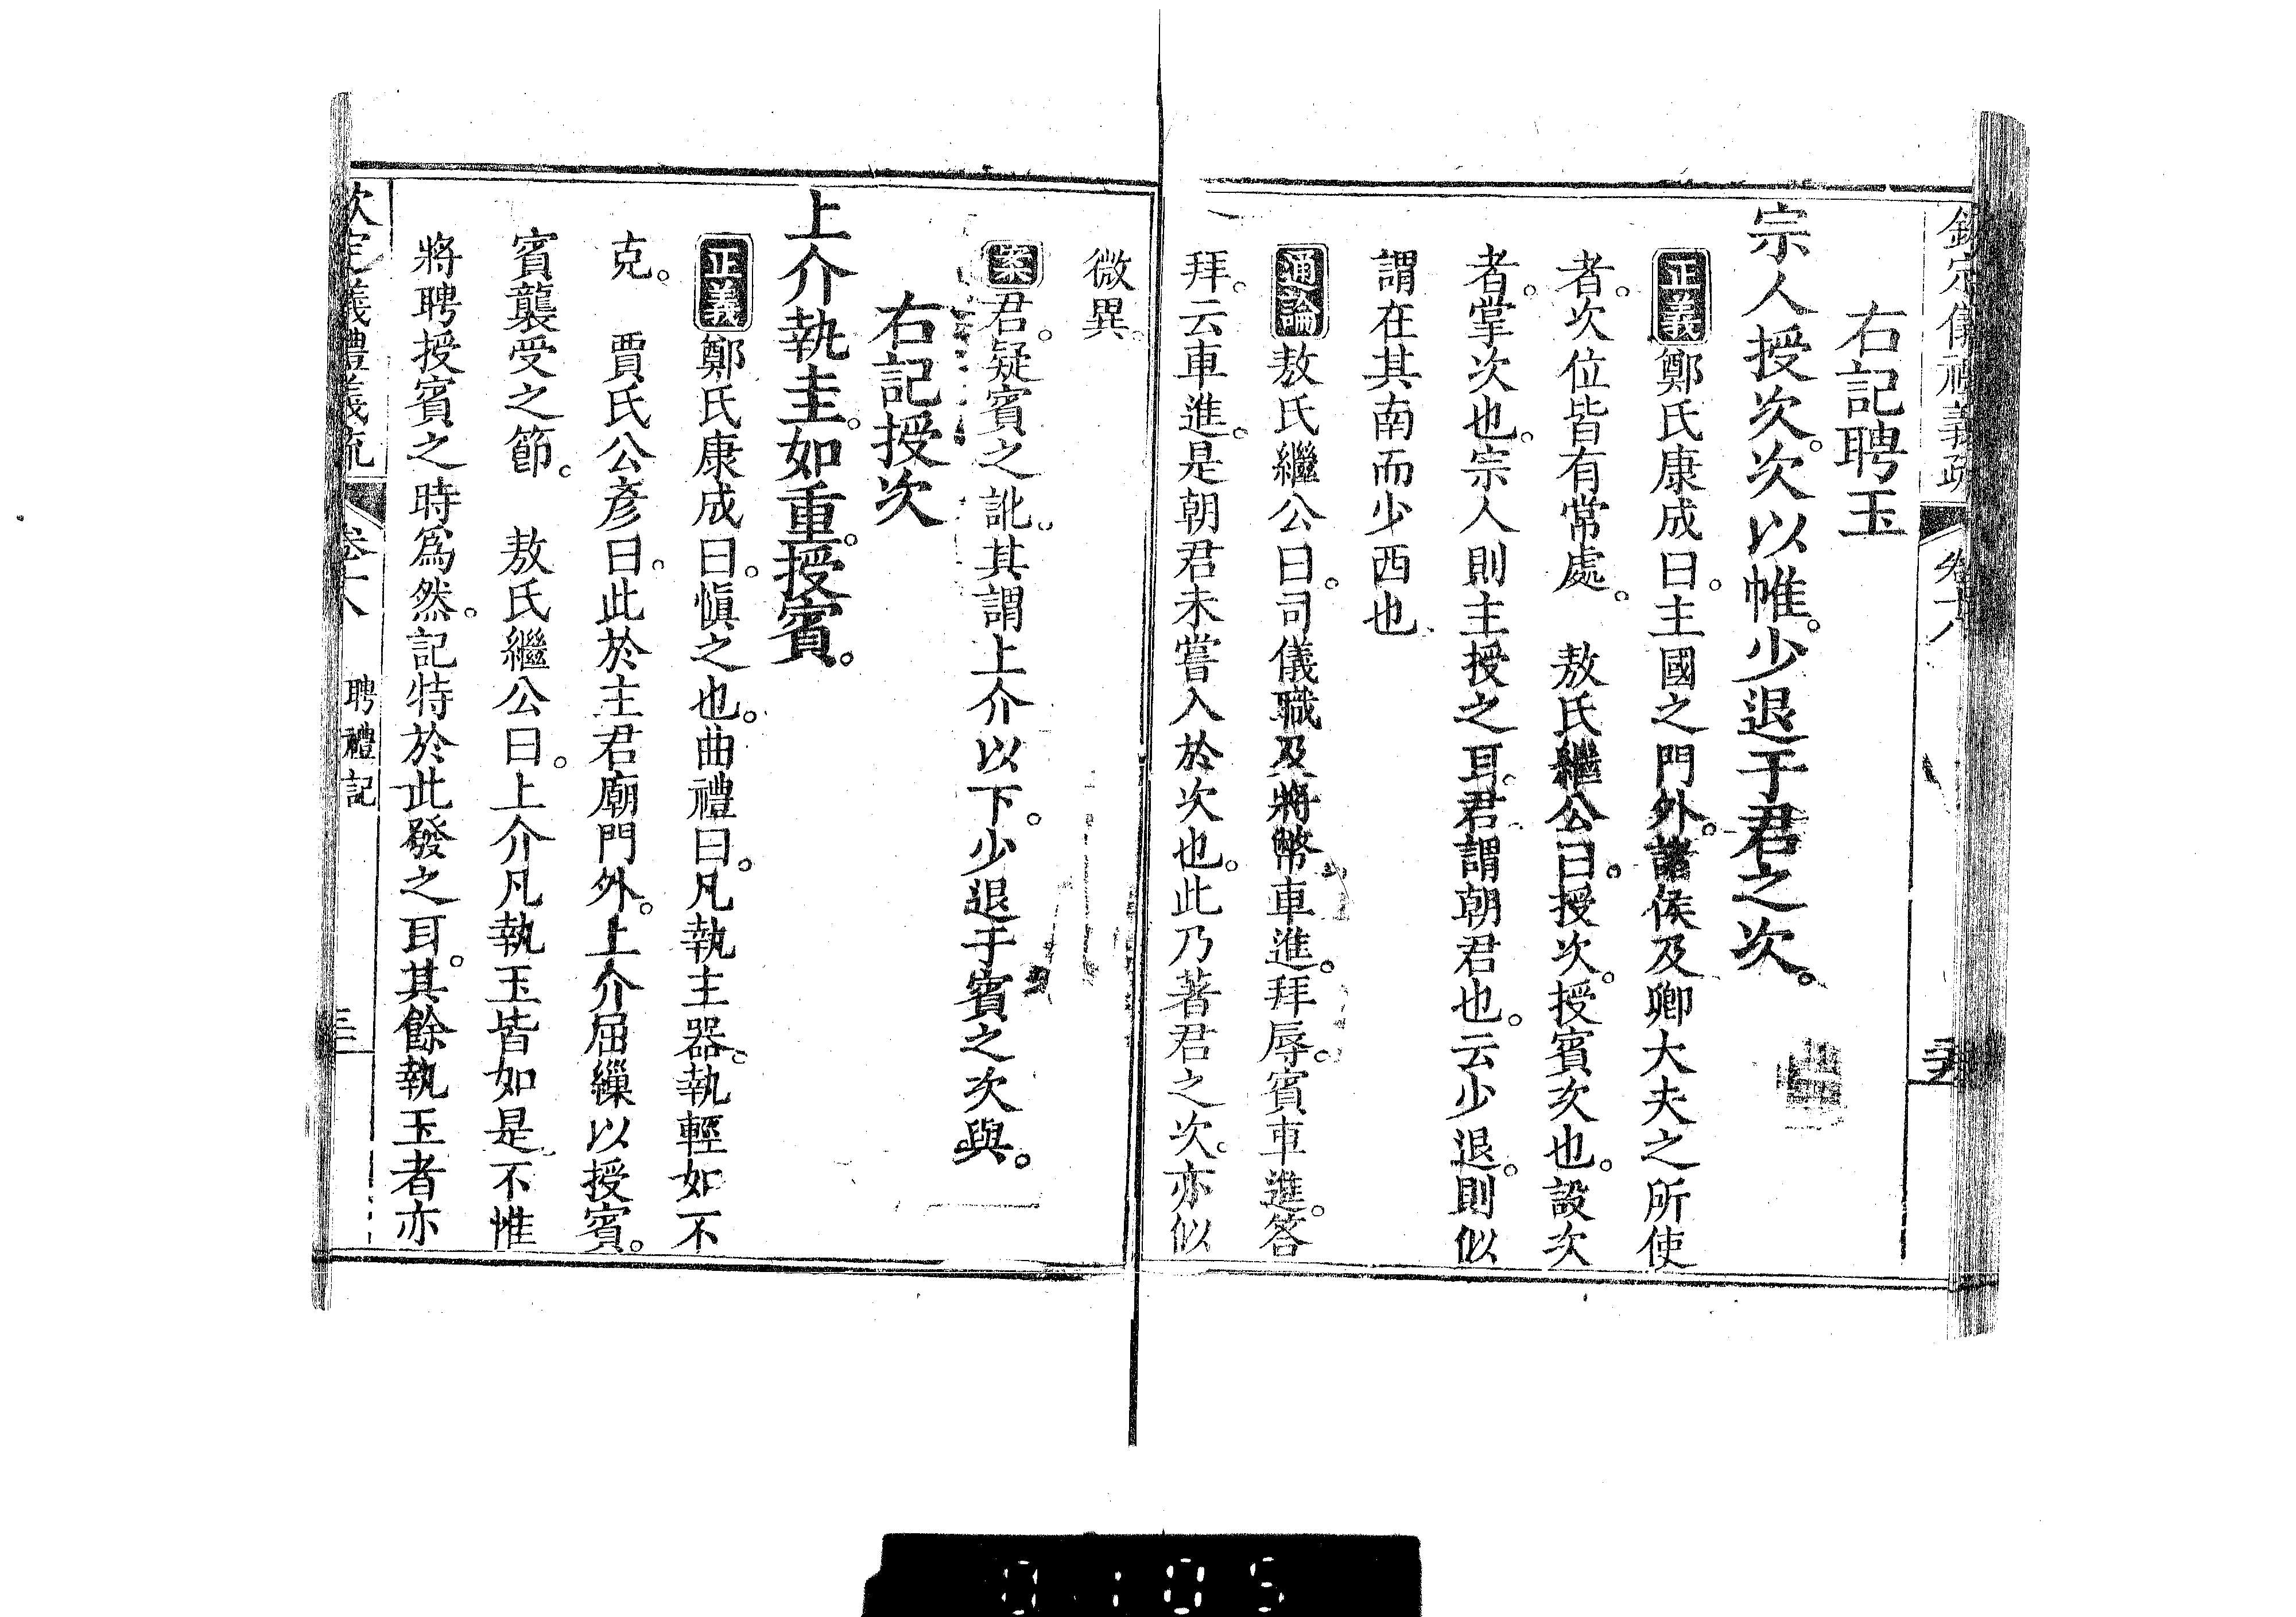 欽定儀禮義疏 卷十八
右記聘玉
宗人授次。次以帷。少退于君之次。
正義鄭氏康成曰。主國之門外。諸侯及卿大夫之所使
者。次位皆有常處。 敖氏繼公曰。授次。授賓次也。設次
者。掌次也。宗人則主授之耳。君謂朝君也。云少退。則似
謂在其南而少西也
通論敖氏繼公曰。司儀職及將幣。車進。拜辱。賓車進。答
拜。云車進。是朝君未嘗入於次也。此乃著君之次。亦似
微異。
案君。疑賓之訛。其謂上介以下。少退于賓之次與。
右記授次
上介執圭。如重。授賓。
正義鄭氏康成曰。愼之也。曲禮曰。凡執主器。執輕如不
克。 賈氏公彥曰。此於主君廟門外。上介屈繅以授賓。
賓襲受之節。 敖氏繼公曰。上介凡執玉皆如是。不惟
將聘授賓之時爲然。記特於此發之耳。其餘執玉者亦
欽定儀禮義疏 卷十八 聘禮記
0105